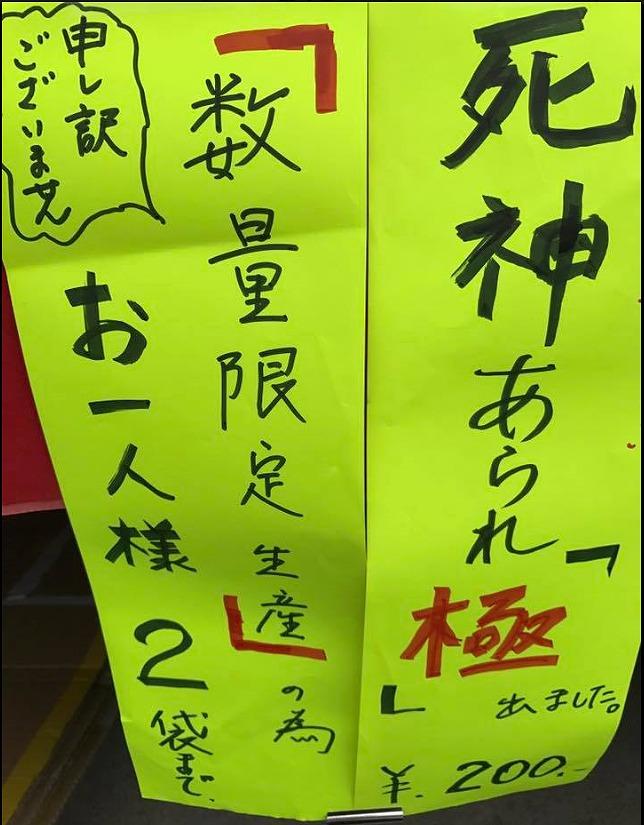 死神あられ
「極」出ました。
¥.200.-
「数量限定生産」の為
お一人様2袋まで.
申し訳
ございません